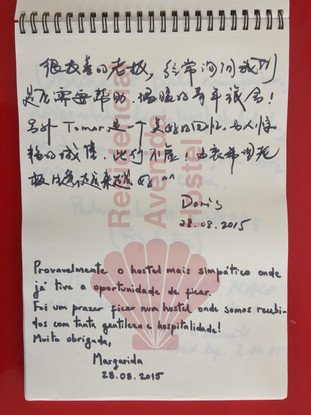 很友善的老板，经常询问我们
是否需要帮助。温暖的青年旅舍！
另外 Tomar 是一个美好的回忆，令人惊
艳的城堡。此行不虚！由衷希望老
板生意越来越好 ^^
Doris
28.08.2015
Residencial
Avenida
Hostel
Provavelmente o hostel mais simpático onde
já tive a oportunidade de ficar.
Foi um prazer ficar num hostel onde somos recebi-
dos com tanta gentileza e hospitalidade!
Muito obrigada,
Margarida
28.08.2015